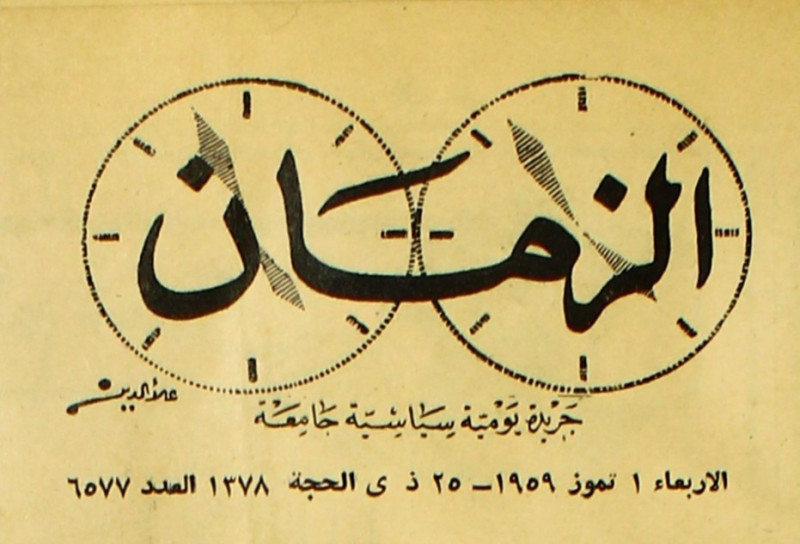 الزمان
علاءالدين
جَرْيدة يَوْميّة سِيَاسْيّة جَامِعَة
الاربعاء ١ تموز ١٩٥٩ – ٢٥ ذ ى الحجة ١٣٧٨ العدد ٦٥٧٧